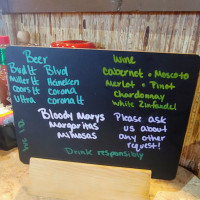 Beer
Bud lt Blvd
Miller lt Heineken
Coors lt Corona
Ultra Corona lt
Wine
Cabernet • Moscato
Merlot • Pinot
Chardonnay
White Zinfandel
Bloody Marys
Margaritas
Mimosas
Please ask
us about
any other
request!
Drink responsibly